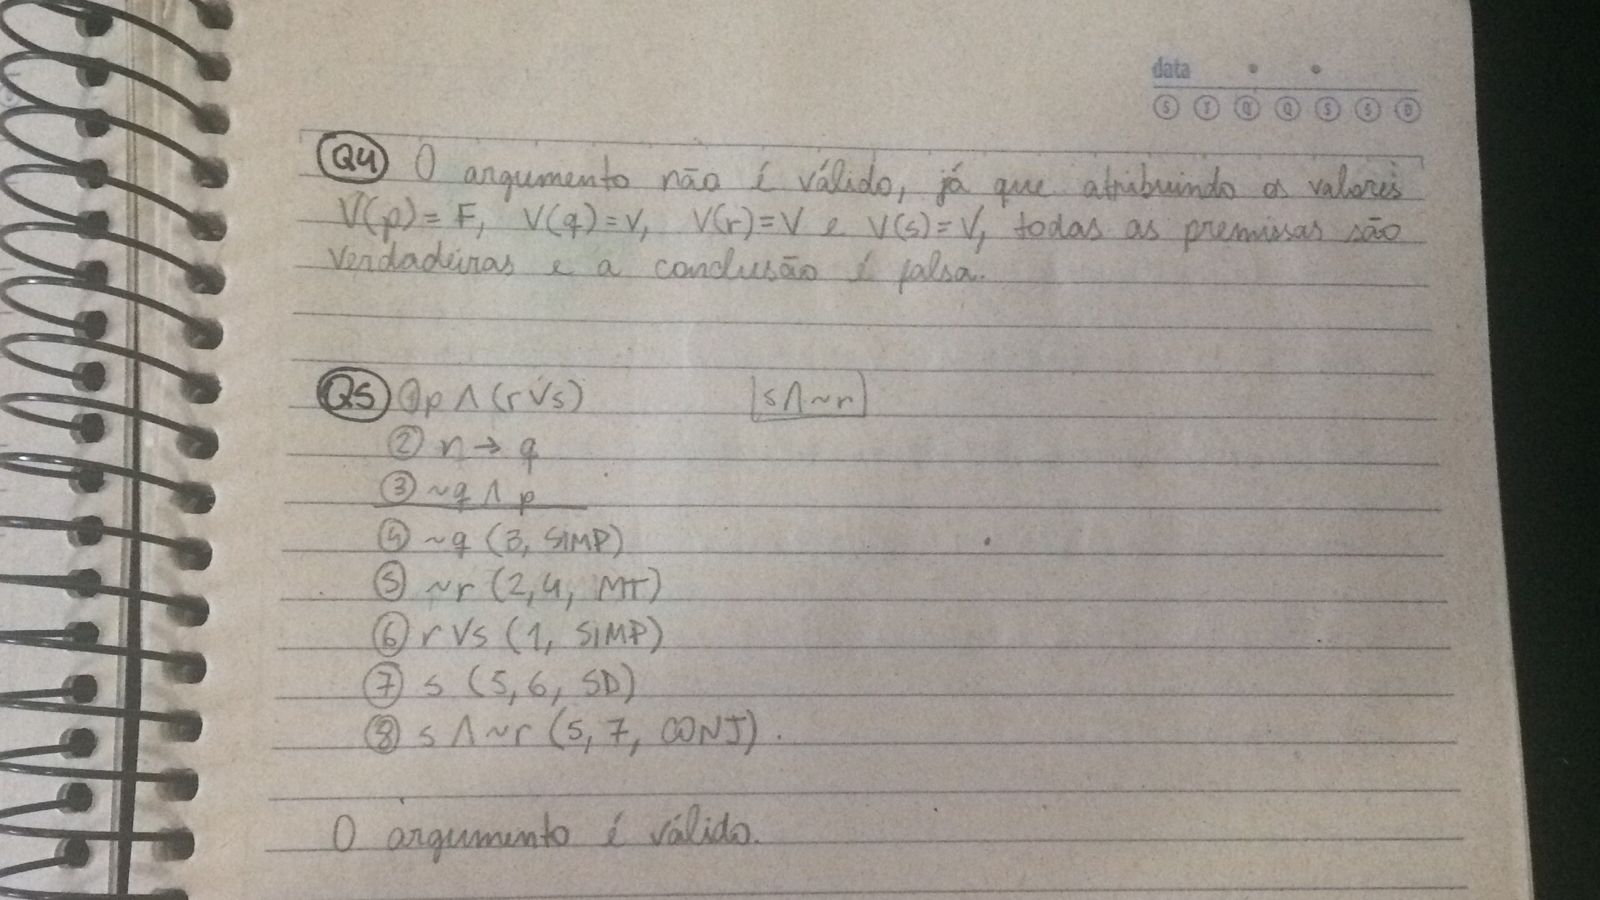 data
S T Q Q S S D
Q4 O argumento não é válido, já que atribuindo os valores
V(p)=F, V(q)=V, V(r)=V e V(s)=V, todas as premissas são
verdadeiras e a conclusão é falsa.
Q5 ① p ∧ (r ∨ s) s ∧ ~r
② r → q
③ ~q ∧ p
④ ~q (3, SIMP)
⑤ ~r (2,4, MT)
⑥ r ∨ s (1, SIMP)
⑦ s (5,6, SD)
⑧ s ∧ ~r (5,7, CONJ).
O argumento é válido.